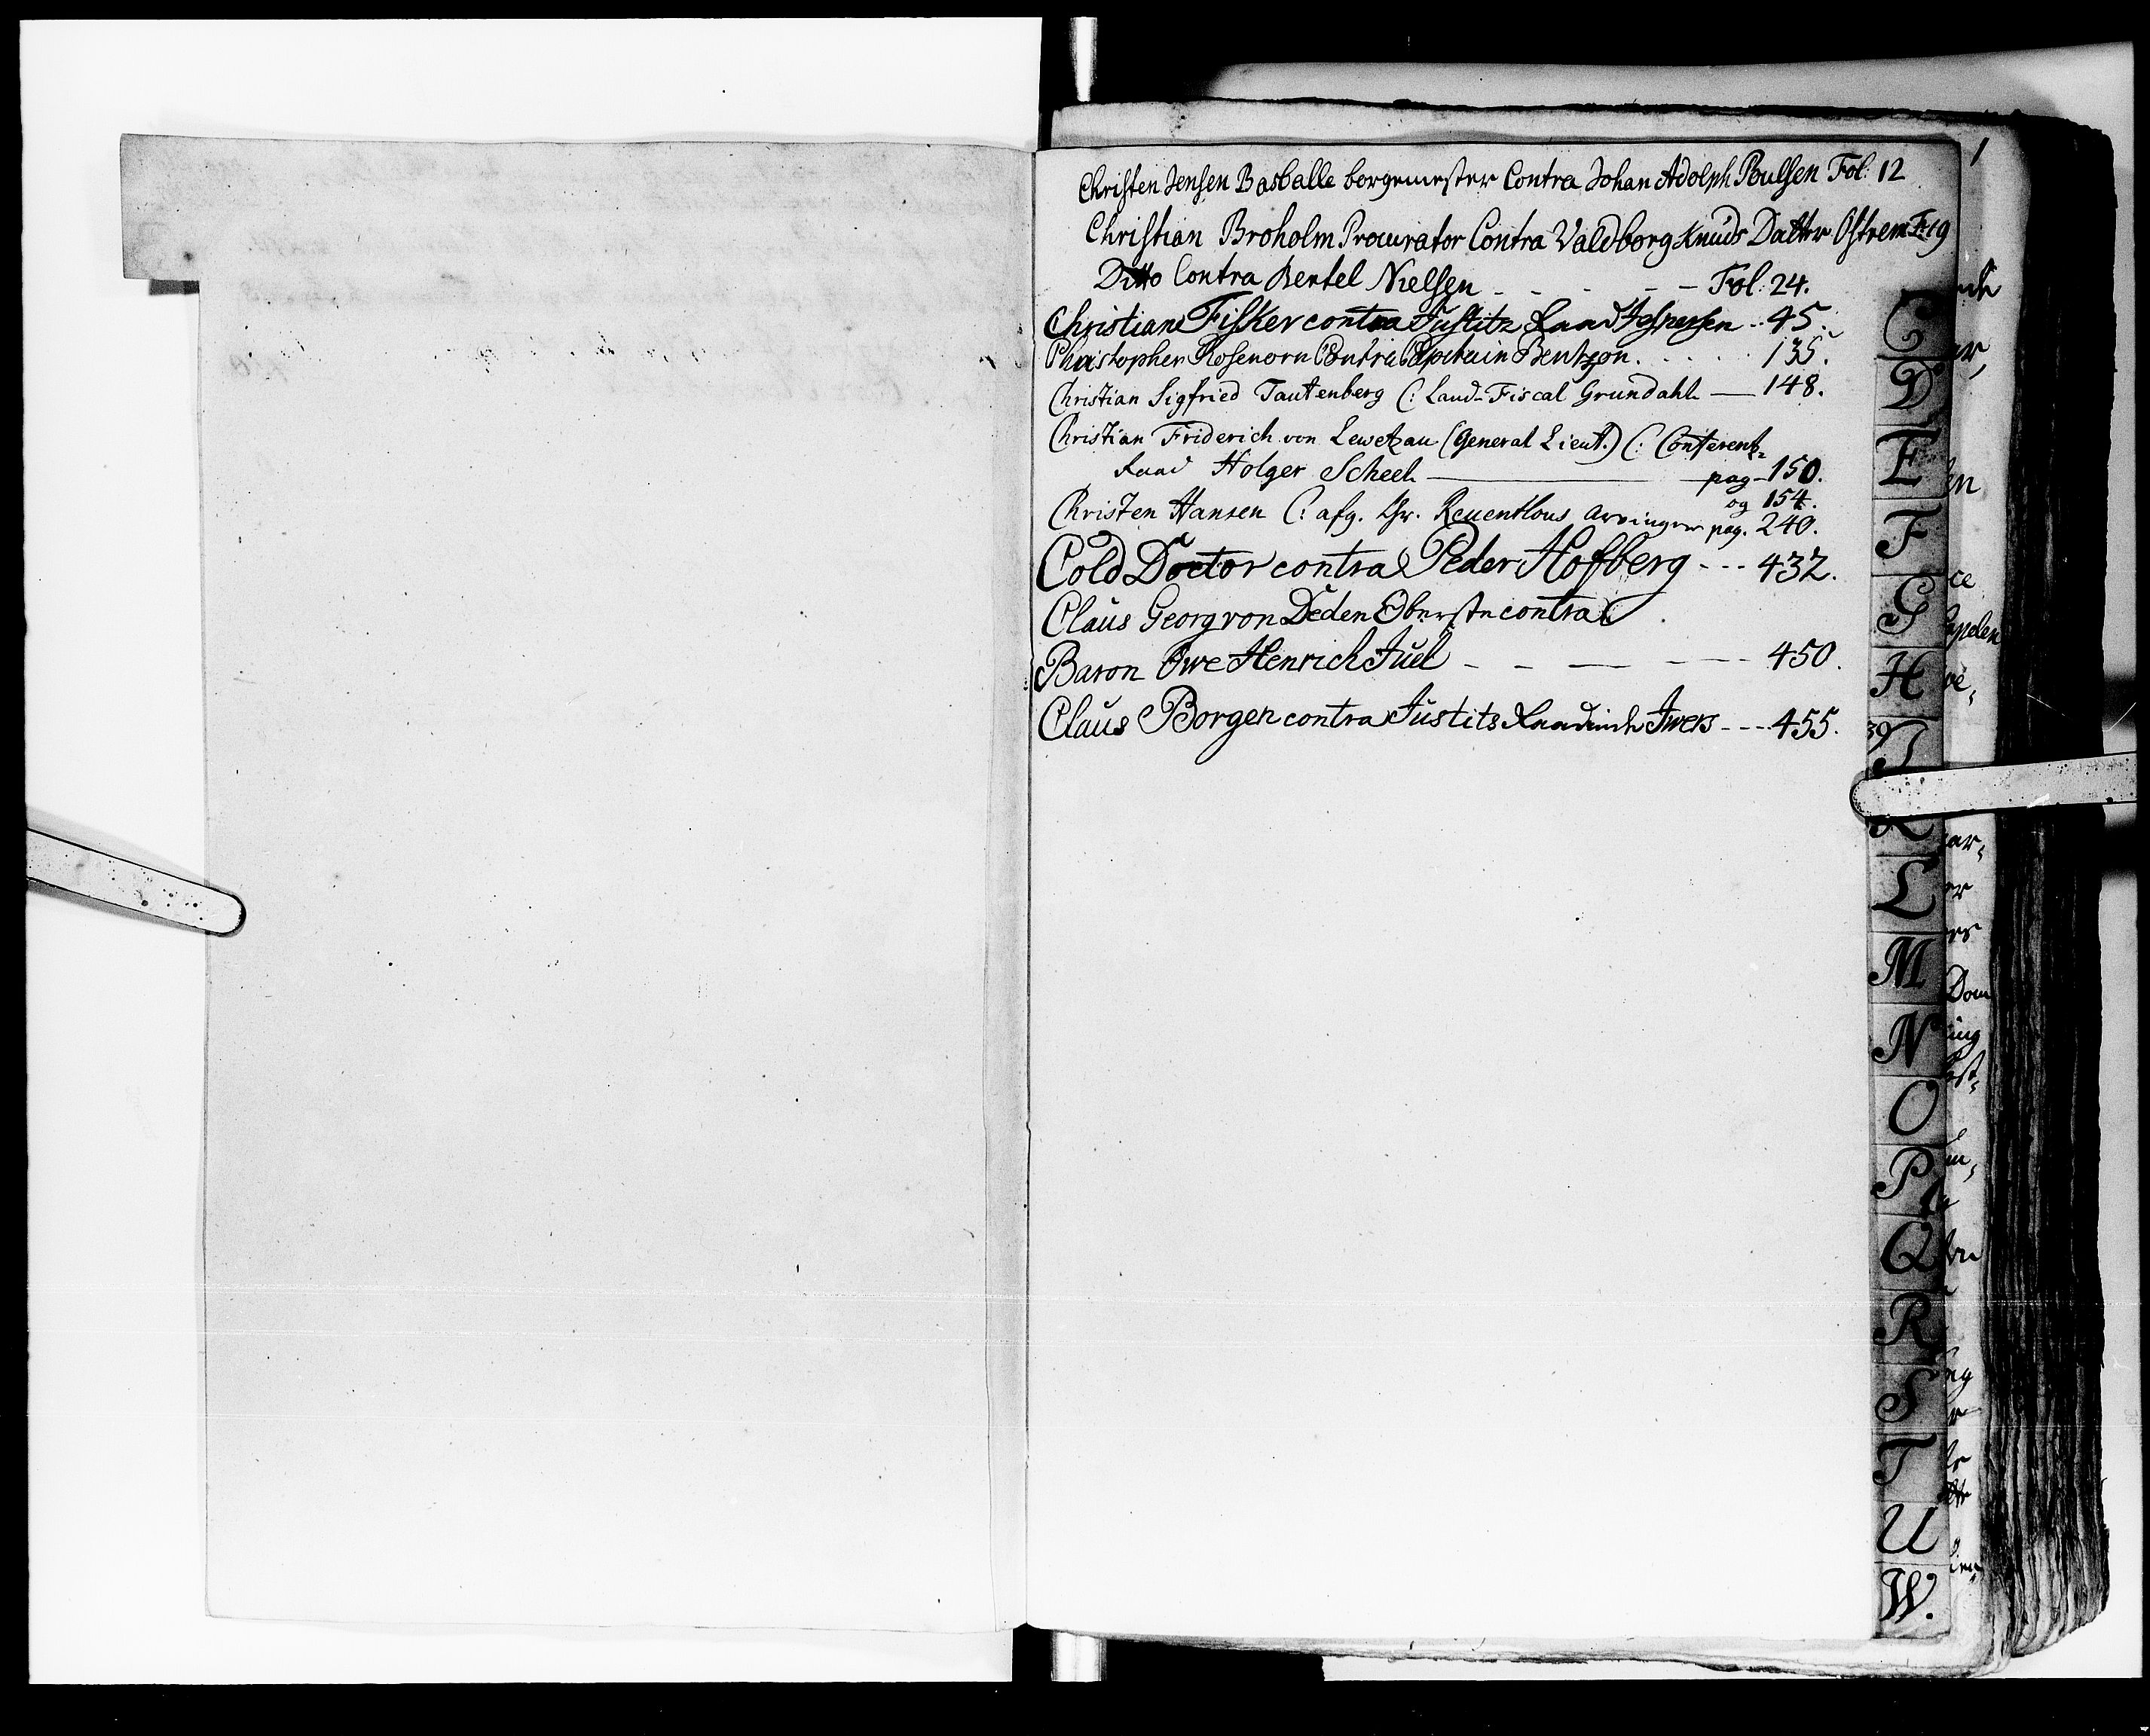 1
Christen Jensen Basballe borgemester Contra Johan Adolph Poulsen Fol: 12
Christian Broholm Procurator Contra Valdborg Knuds Datter Ostrem F: 19
Ditto Contra Bertel Nielsen - - - - - Fol: 24.
Christian Fisker contra Justitz Raad Jespersen .. 45.
Christopher Rosenorn Contra Capitain Bentzon. . . . . 135.
Christian Sigfried Tautenberg C: Land-Fiscal Grundahl — 148.
Christian Friderich von Lewetzau (General Lieut.) C: Conferentz-
Raad Holger Scheel — pag - 150.
og 154.
Christen Hansen C: afg. Gr. Reventlous Arvinger pag. 240.
Cold Doctor contra Peder Hofberg - - - 432.
Claus Georg von Deden Oberste contra
Baron Owe Henrich Juel - - — - - - 450.
Claus Borgen contra Justits Raadinde Iwers - - - 455.
C
D
E
F
G
H
I
K
L
M
N
O
P
Q
R
S
T
U
W.